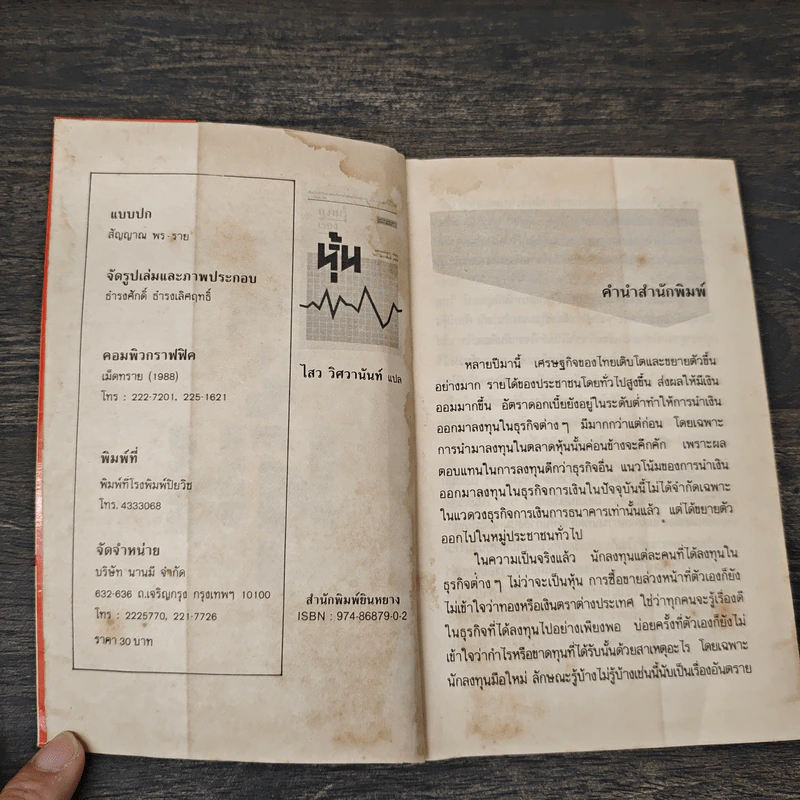 แบบปก
สัญญาณ พร-ราย
จัดรูปเล่มและภาพประกอบ
ธำรงศักดิ์ ธำรงเลิศฤทธิ์
คอมพิวกราฟฟิค
เม็ดทราย (1988)
โทร : 222-7201, 225-1621
พิมพ์ที่
พิมพ์ที่โรงพิมพ์ปิยวิช
โทร. 4333068
จัดจำหน่าย
บริษัท นานมี จำกัด
632-636 ถ.เจริญกรุง กรุงเทพฯ 10100
โทร : 2225770, 221-7726
ราคา 30 บาท
หุ้น
ไสว วิศวานันท์ แปล
สำนักพิมพ์ยินหยาง
ISBN : 974-86879-0-2
คำนำสำนักพิมพ์
หลายปีมานี้ เศรษฐกิจของไทยเติบโตและขยายตัวขึ้น
อย่างมาก รายได้ของประชาชนโดยทั่วไปสูงขึ้น ส่งผลให้มีเงิน
ออมมากขึ้น อัตราดอกเบี้ยยังอยู่ในระดับต่ำทำให้การนำเงิน
ออกมาลงทุนในธุรกิจต่างๆ มีมากกว่าแต่ก่อน โดยเฉพาะ
การนำมาลงทุนในตลาดหุ้นนั้นค่อนข้างจะคึกคัก เพราะผล
ตอบแทนในการลงทุนดีกว่าธุรกิจอื่น แนวโน้มของการนำเงิน
ออกมาลงทุนในธุรกิจการเงินในปัจจุบันนี้ไม่ได้จำกัดเฉพาะ
ในแวดวงธุรกิจการเงินการธนาคารเท่านั้นแล้ว แต่ได้ขยายตัว
ออกไปในหมู่ประชาชนทั่วไป
ในความเป็นจริงแล้ว นักลงทุนแต่ละคนที่ได้ลงทุนใน
ธุรกิจต่างๆ ไม่ว่าจะเป็นหุ้น การซื้อขายล่วงหน้าที่ตัวเองก็ยัง
ไม่เข้าใจว่าทองหรือเงินตราต่างประเทศ ใช่ว่าทุกคนจะรู้เรื่องดี
ในธุรกิจที่ได้ลงทุนไปอย่างเพียงพอ บ่อยครั้งที่ตัวเองก็ยังไม่
เข้าใจว่ากำไรหรือขาดทุนที่ได้รับนั้นด้วยสาเหตุอะไร โดยเฉพาะ
นักลงทุนมือใหม่ ลักษณะรู้บ้างไม่รู้บ้างเช่นนี้นับเป็นเรื่องอันตราย